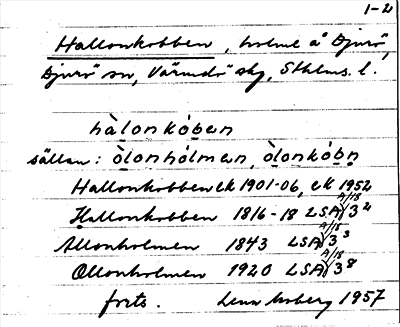 1-2
Hallonkobben, holme å Djurö,
Djurö sn, Värmdö skg, Sthlms. l.
hàlonkóben
sällan: òlonhólmen, òlonkóbn
Hallonkobben ek 1901-06, ek 1952
Hallonkobben 1816-18 LSA A/18 3²
Allonholmen 1843 LSA A/18 3³
Ollonholmen 1920 LSA A/18 3⁸
forts. Lena Moberg 1957